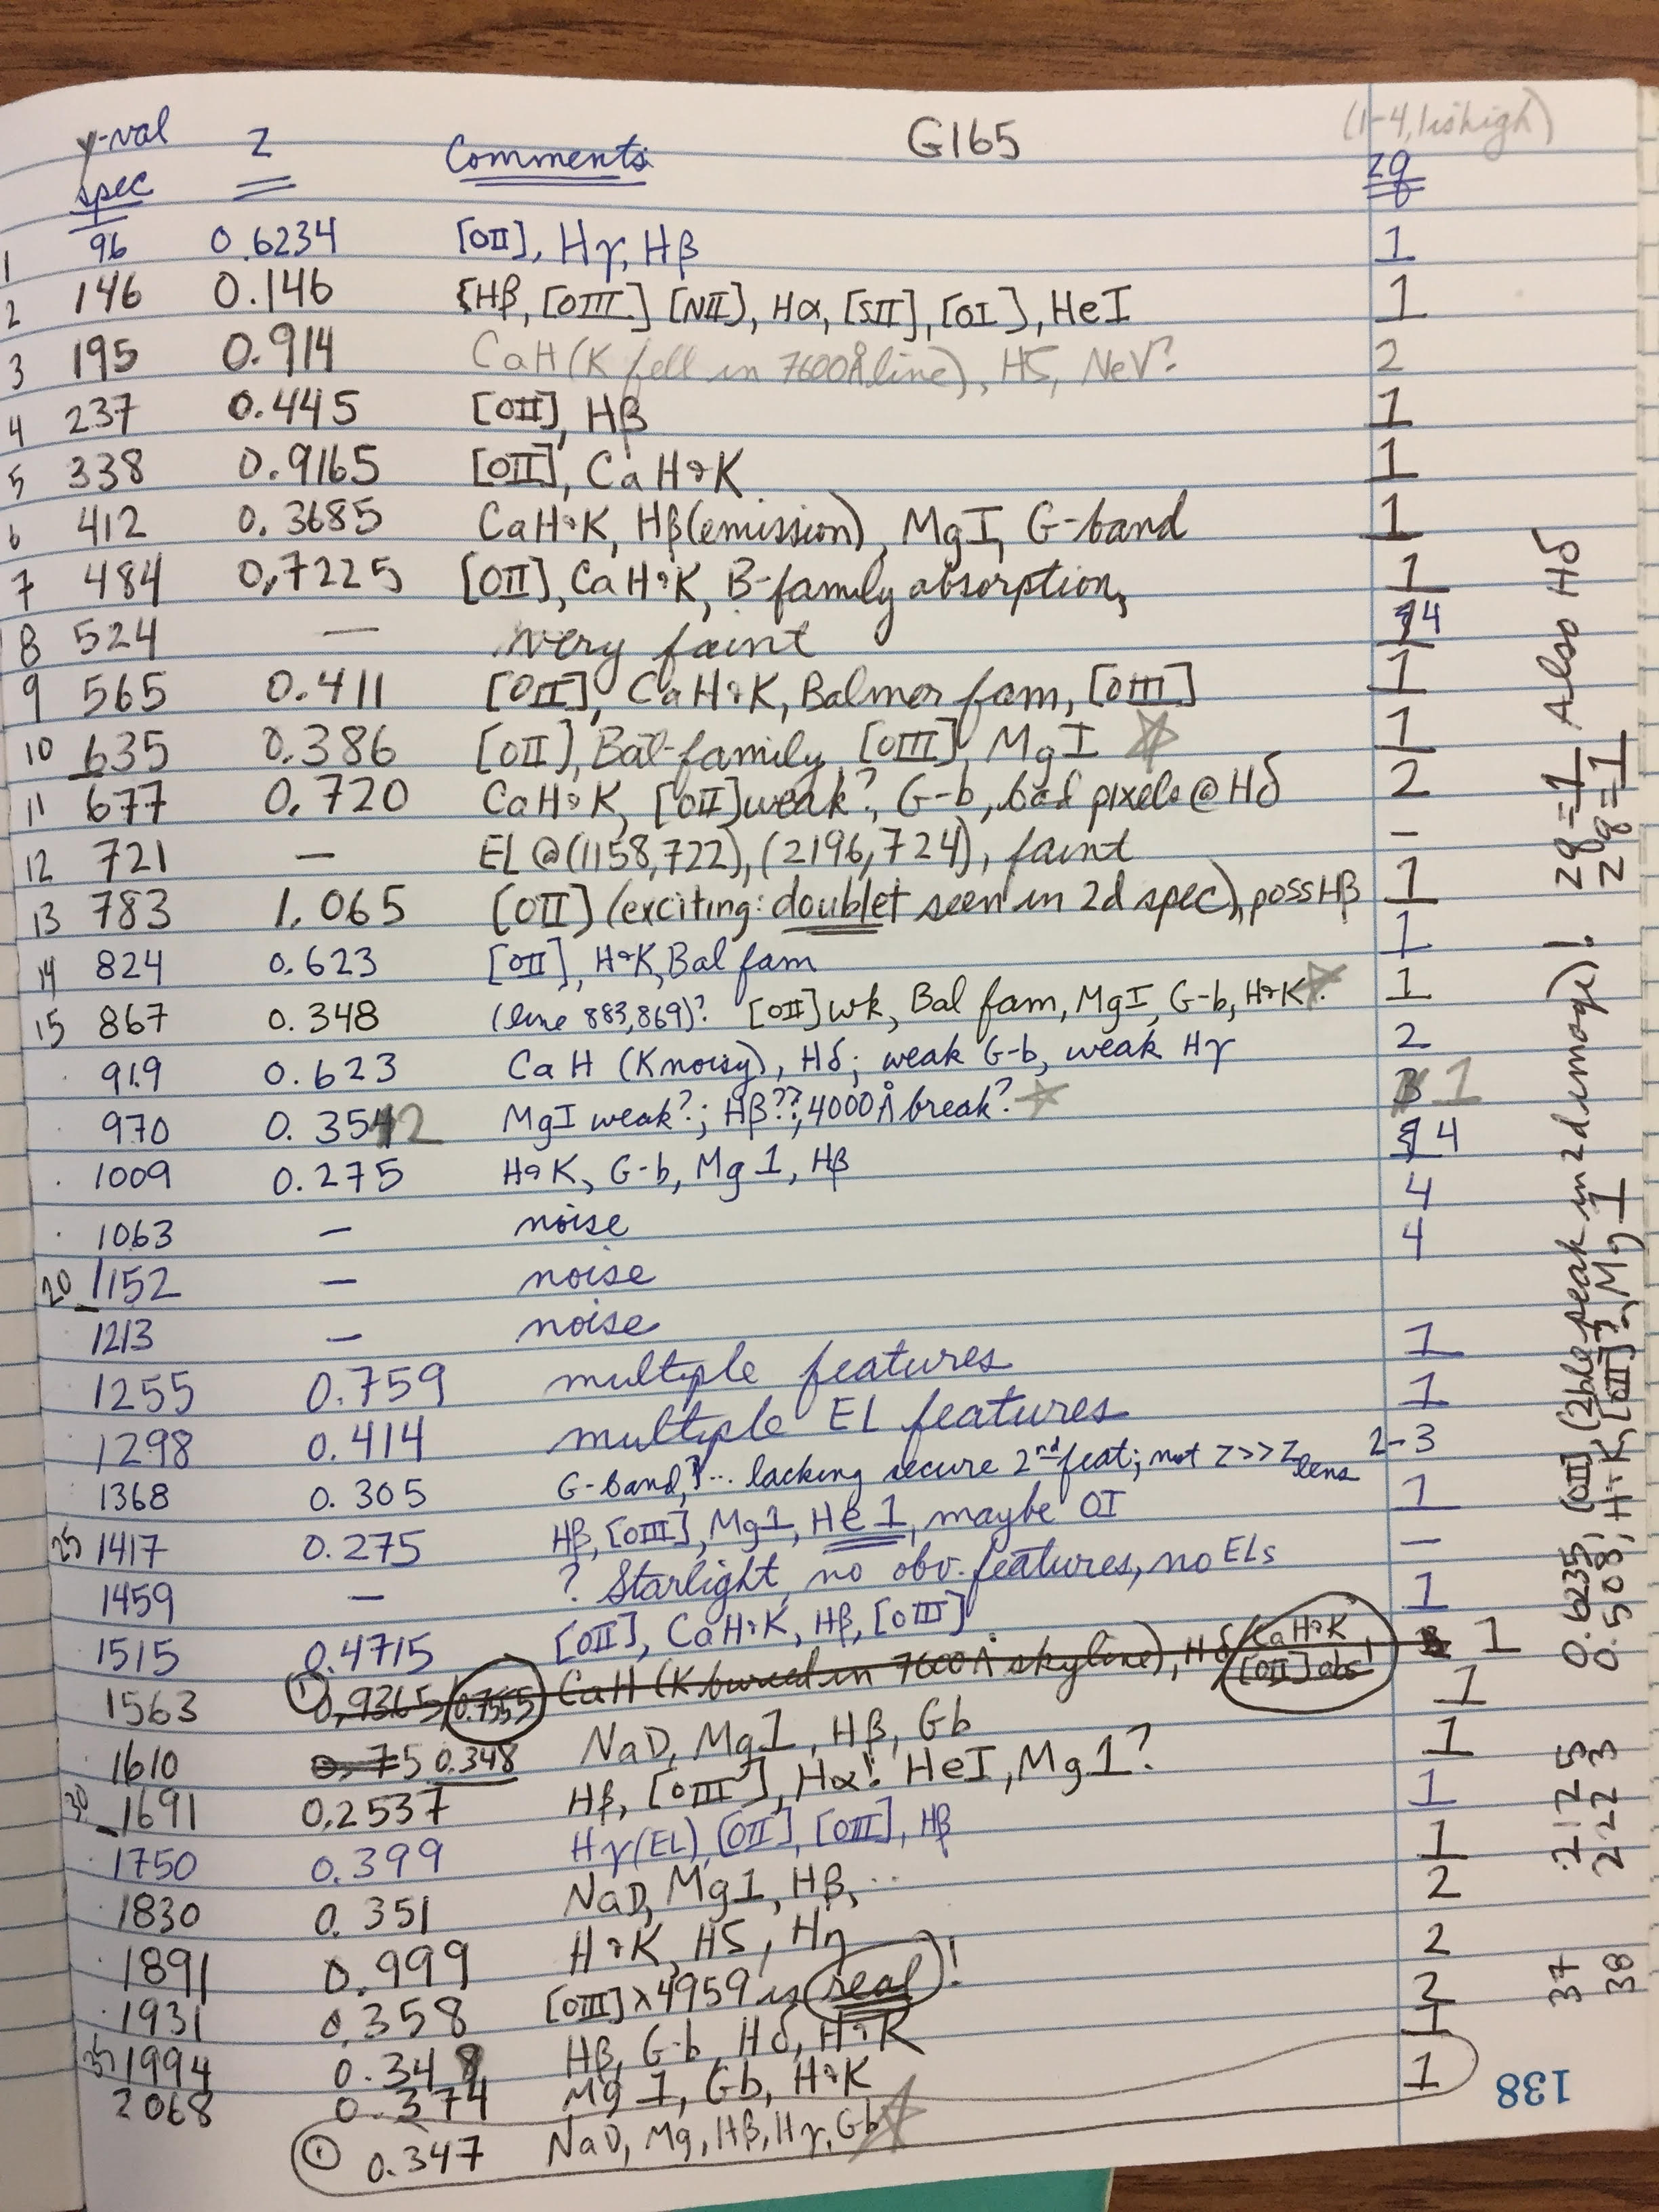 G165
(1-4, 1 is high)
y-val spec z Comments: zq
1 96 0.6234 [OII], Hγ, Hβ 1
2 146 0.146 {Hβ, [OIII] [NII], Hα, [SII], [OI], HeI 1
3 195 0.914 CaH (K fell in 7600Å line), Hζ, NeV? 2
4 237 0.445 [OII], Hβ 1
5 338 0.9165 [OII], Ca H&K 1
6 412 0.3685 CaH&K, Hβ(emission), MgI, G-band 1
7 484 0.7225 [OII], CaH&K, B-family absorption, 1
8 524 — very faint 4
9 565 0.411 [OII], CaH&K, Balmer fam, [OIII] 1
10 635 0.386 [OII], Bal-family, [OIII], MgI ☆ 1
11 677 0.720 CaH&K, [OII] weak?, G-b, bad pixels @ Hδ 2
12 721 — EL @ (1158,722), (2196,724), faint –
13 783 1.065 [OII] (exciting: doublet seen in 2d spec), poss Hβ 1
14 824 0.623 [OII], H&K, Bal fam 1
15 867 0.348 (line 883,869)? [OII] wk, Bal fam, MgI, G-b, H&K ☆ 1
919 0.623 CaH (K noisy), Hδ; weak G-b, weak Hγ 2
970 0.3542 MgI weak?; Hβ??; 4000Å break? ☆ 1
1009 0.275 H&K, G-b, Mg1, Hβ 4
1063 – noise 4
20 1152 – noise 4
1213 – noise
1255 0.759 multiple features 1
1298 0.414 multiple EL features 1
1368 0.305 G-Band,?... lacking secure 2nd feat; not z>>z lens 2-3
25 1417 0.275 Hβ, [OIII], Mg1, He1, maybe OI 1
1459 – ? Starlight, no obv. features, no ELs –
1515 0.4715 [OII], CaH&K, Hβ, [OIII] 1
1563 ① 0.9365 0.7555 CaH (K buried in 7600Å skyline), Hδ CaH&K [OII] abs! 1
1610 0.75 0.348 NaD, Mg1, Hβ, Gb 1
30 1691 0.2537 Hβ, [OIII], Hα! HeI, Mg1? 1
1750 0.399 Hγ(EL), [OII], [OIII], Hβ 1
1830 0.351 NaD, Mg1, Hβ, ... 1
1891 0.999 H&K, Hζ, Hη 2
1931 0.358 [OIII] λ4959 is real! 2
35 1994 0.348 Hβ, G-b, Hδ, H&K 2
2068 0.374 Mg I, Gb, H&K 1
① 0.347 NaD, Mg, Hβ, Hγ, Gb ☆ 1
37 2125 0.6235; [OII], (2ble peak in 2d image)! zq=1 Also Hδ
38 2223 0.508; H&K, [OII]?, Mg1 zq=1
138